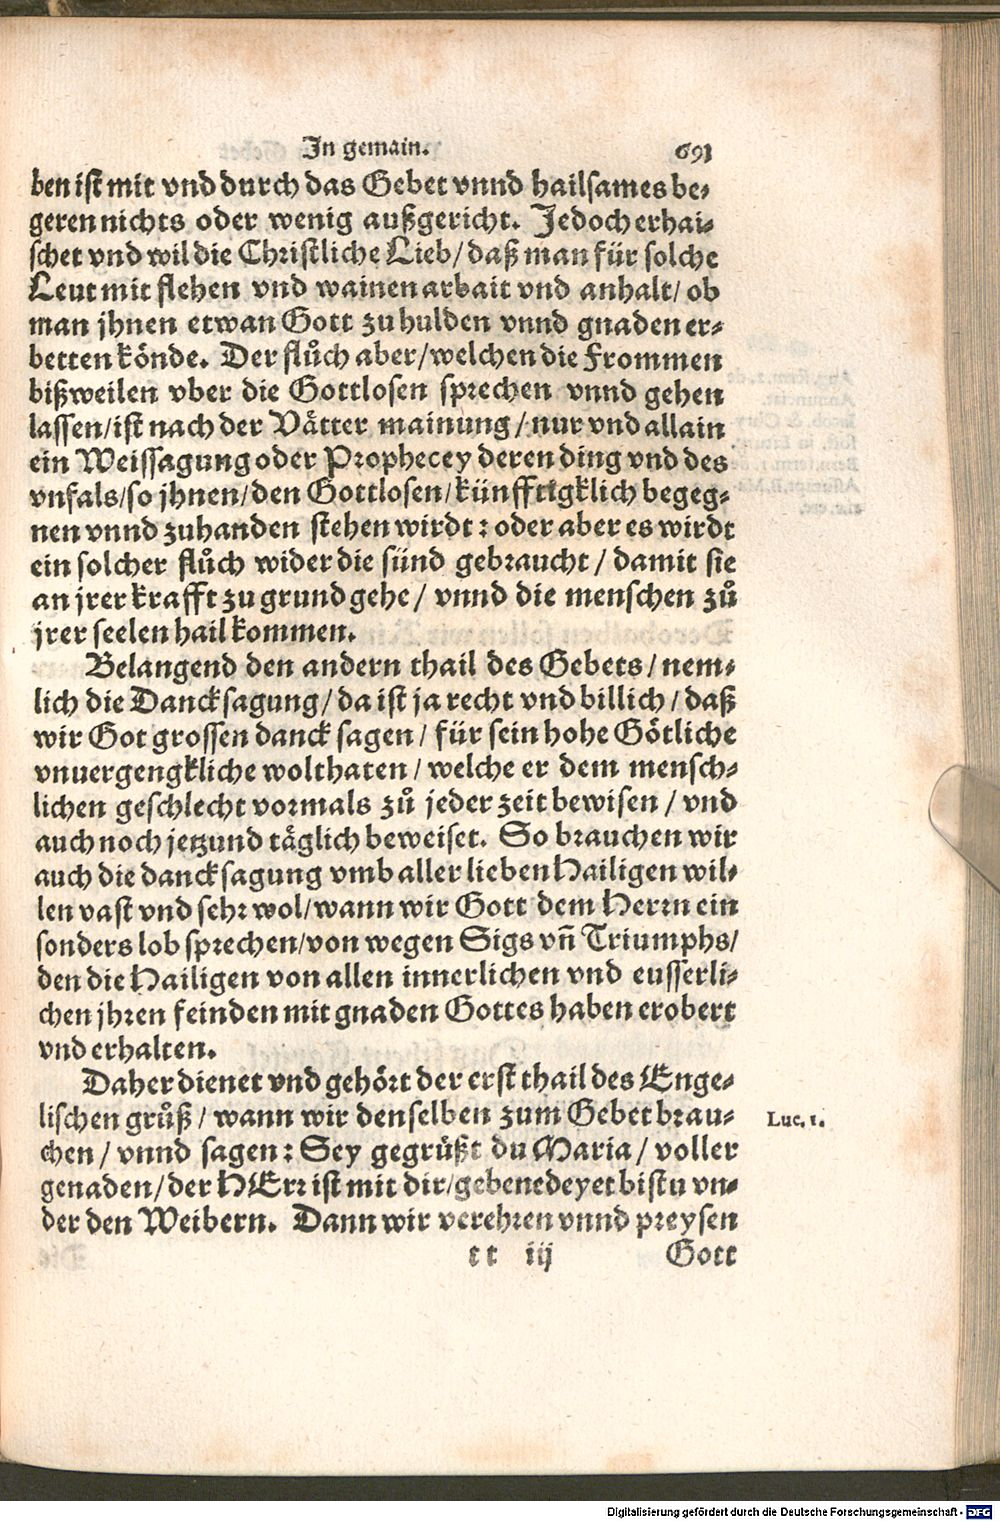 In gemain. 691
ben ist mit vnd durch das Gebet vnnd hailsames be-
geren nichts oder wenig außgericht. Jedoch erhai-
schet vnd wil die Christliche Lieb/ daß man für solche
Leut mit flehen vnd wainen arbait vnd anhalt/ ob
man jhnen etwan Gott zu hulden vnnd gnaden er-
betten könde. Der flůch aber/ welchen die Frommen
bißweilen vber die Gottlosen sprechen vnnd gehen
lassen/ ist nach der Vätter mainung/ nur vnd allain
ein Weissagung oder Prophecey deren ding vnd des
vnfals/ so jhnen/ den Gottlosen/ künfftigklich begeg-
nen vnnd zuhanden stehen wirdt: oder aber es wirdt
ein solcher flůch wider die sünd gebraucht/ damit sie
an jrer krafft zu grund gehe/ vnnd die menschen zů
jrer seelen hail kommen.
Belangend den andern thail des Gebets/ nem-
lich die Dancksagung/ da ist ja recht vnd billich/ daß
wir Got grossen danck sagen/ für sein hohe Götliche
vnuergengkliche wolthaten/ welche er dem mensch-
lichen geschlecht vormals zů jeder zeit bewisen/ vnd
auch noch jetzund täglich beweiset. So brauchen wir
auch die dancksagung vmb aller lieben Hailigen wil-
len vast vnd sehr wol/ wann wir Gott dem Herrn ein
sonders lob sprechen/ von wegen Sigs vn̄ Triumphs/
den die Hailigen von allen innerlichen vnd eusserli-
chen jhren feinden mit gnaden Gottes haben erobert
vnd erhalten.
Daher dienet vnd gehört der erst thail des Enge-
lischen grůß/ wann wir denselben zum Gebet brau-
Luc. 1.
chen/ vnnd sagen: Sey gegrüßt du Maria/ voller
genaden/ der HErr ist mit dir/ gebenedeyet bistu vn-
der den Weibern. Dann wir verehren vnnd preysen
tt iij Gott
Digitalisierung gefördert durch die Deutsche Forschungsgemeinschaft - DFG